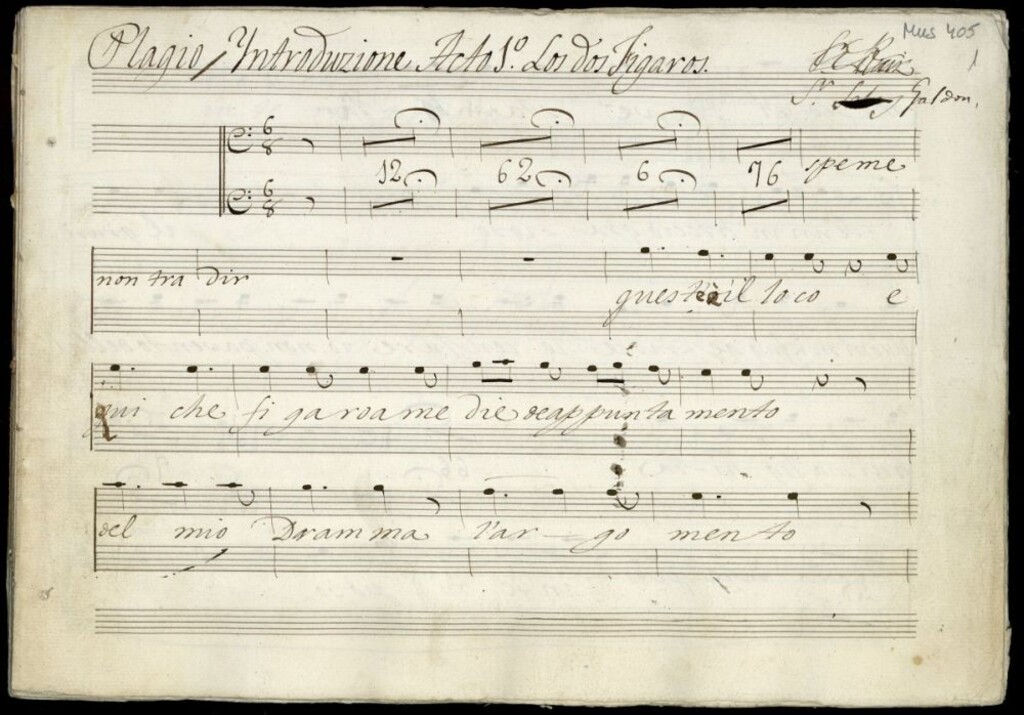 Mus 405
Plagio, Yntroduzione Acto 1º. Los dos Figaros.
Sr. Ruiz
1
Sr. Galdon.
6 8
12 62 6 76 speme
6 8
non tra dir
quest'è il loco e
qui che figaro a me die de appuntamento
del mio Dramma l'ar-go mento